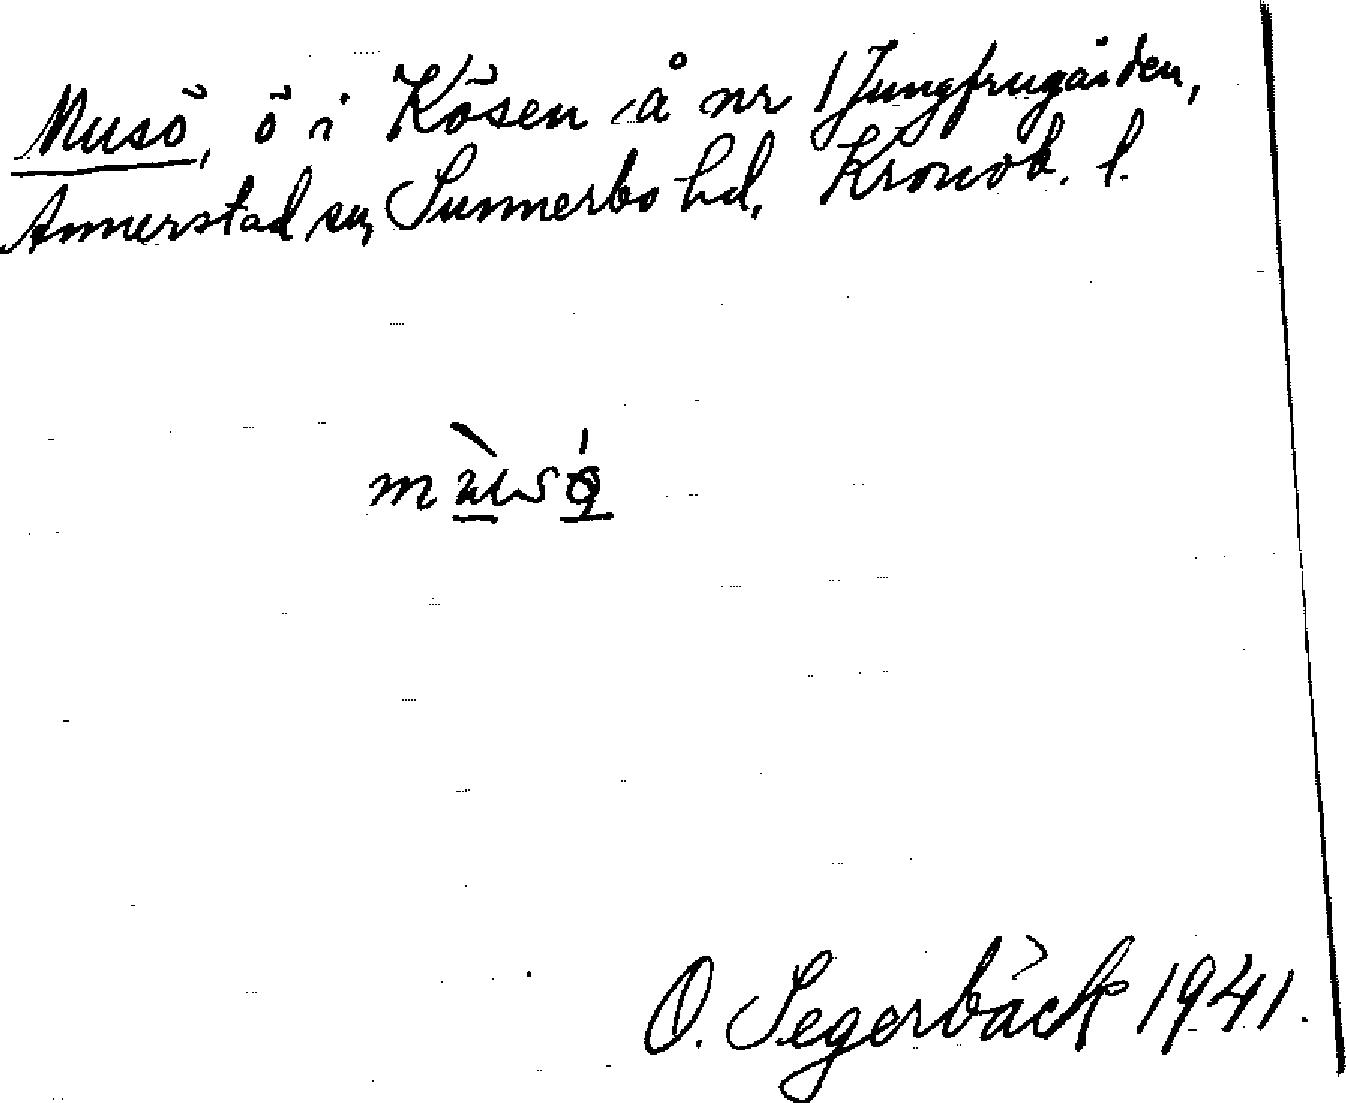 Musö, ö i Kösen å nr 1 Jungfrugården,
Annerstad sn, Sunnerbo hd, Kronob. l.
O. Segerbäck 1941.